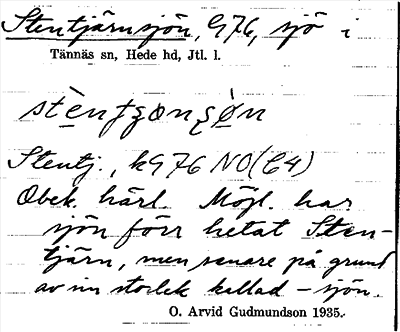 Stentjärnsjön, G76, sjö i
Tännäs sn, Hede hd, Jtl. l.
Stentj., kG76 NO(C4)
Obek. härl. Möjl. har
sjön förr hetat Sten-
tjärn, men senare på grund
av sin storlek kallad -sjön.
O. Arvid Gudmundson 1935.